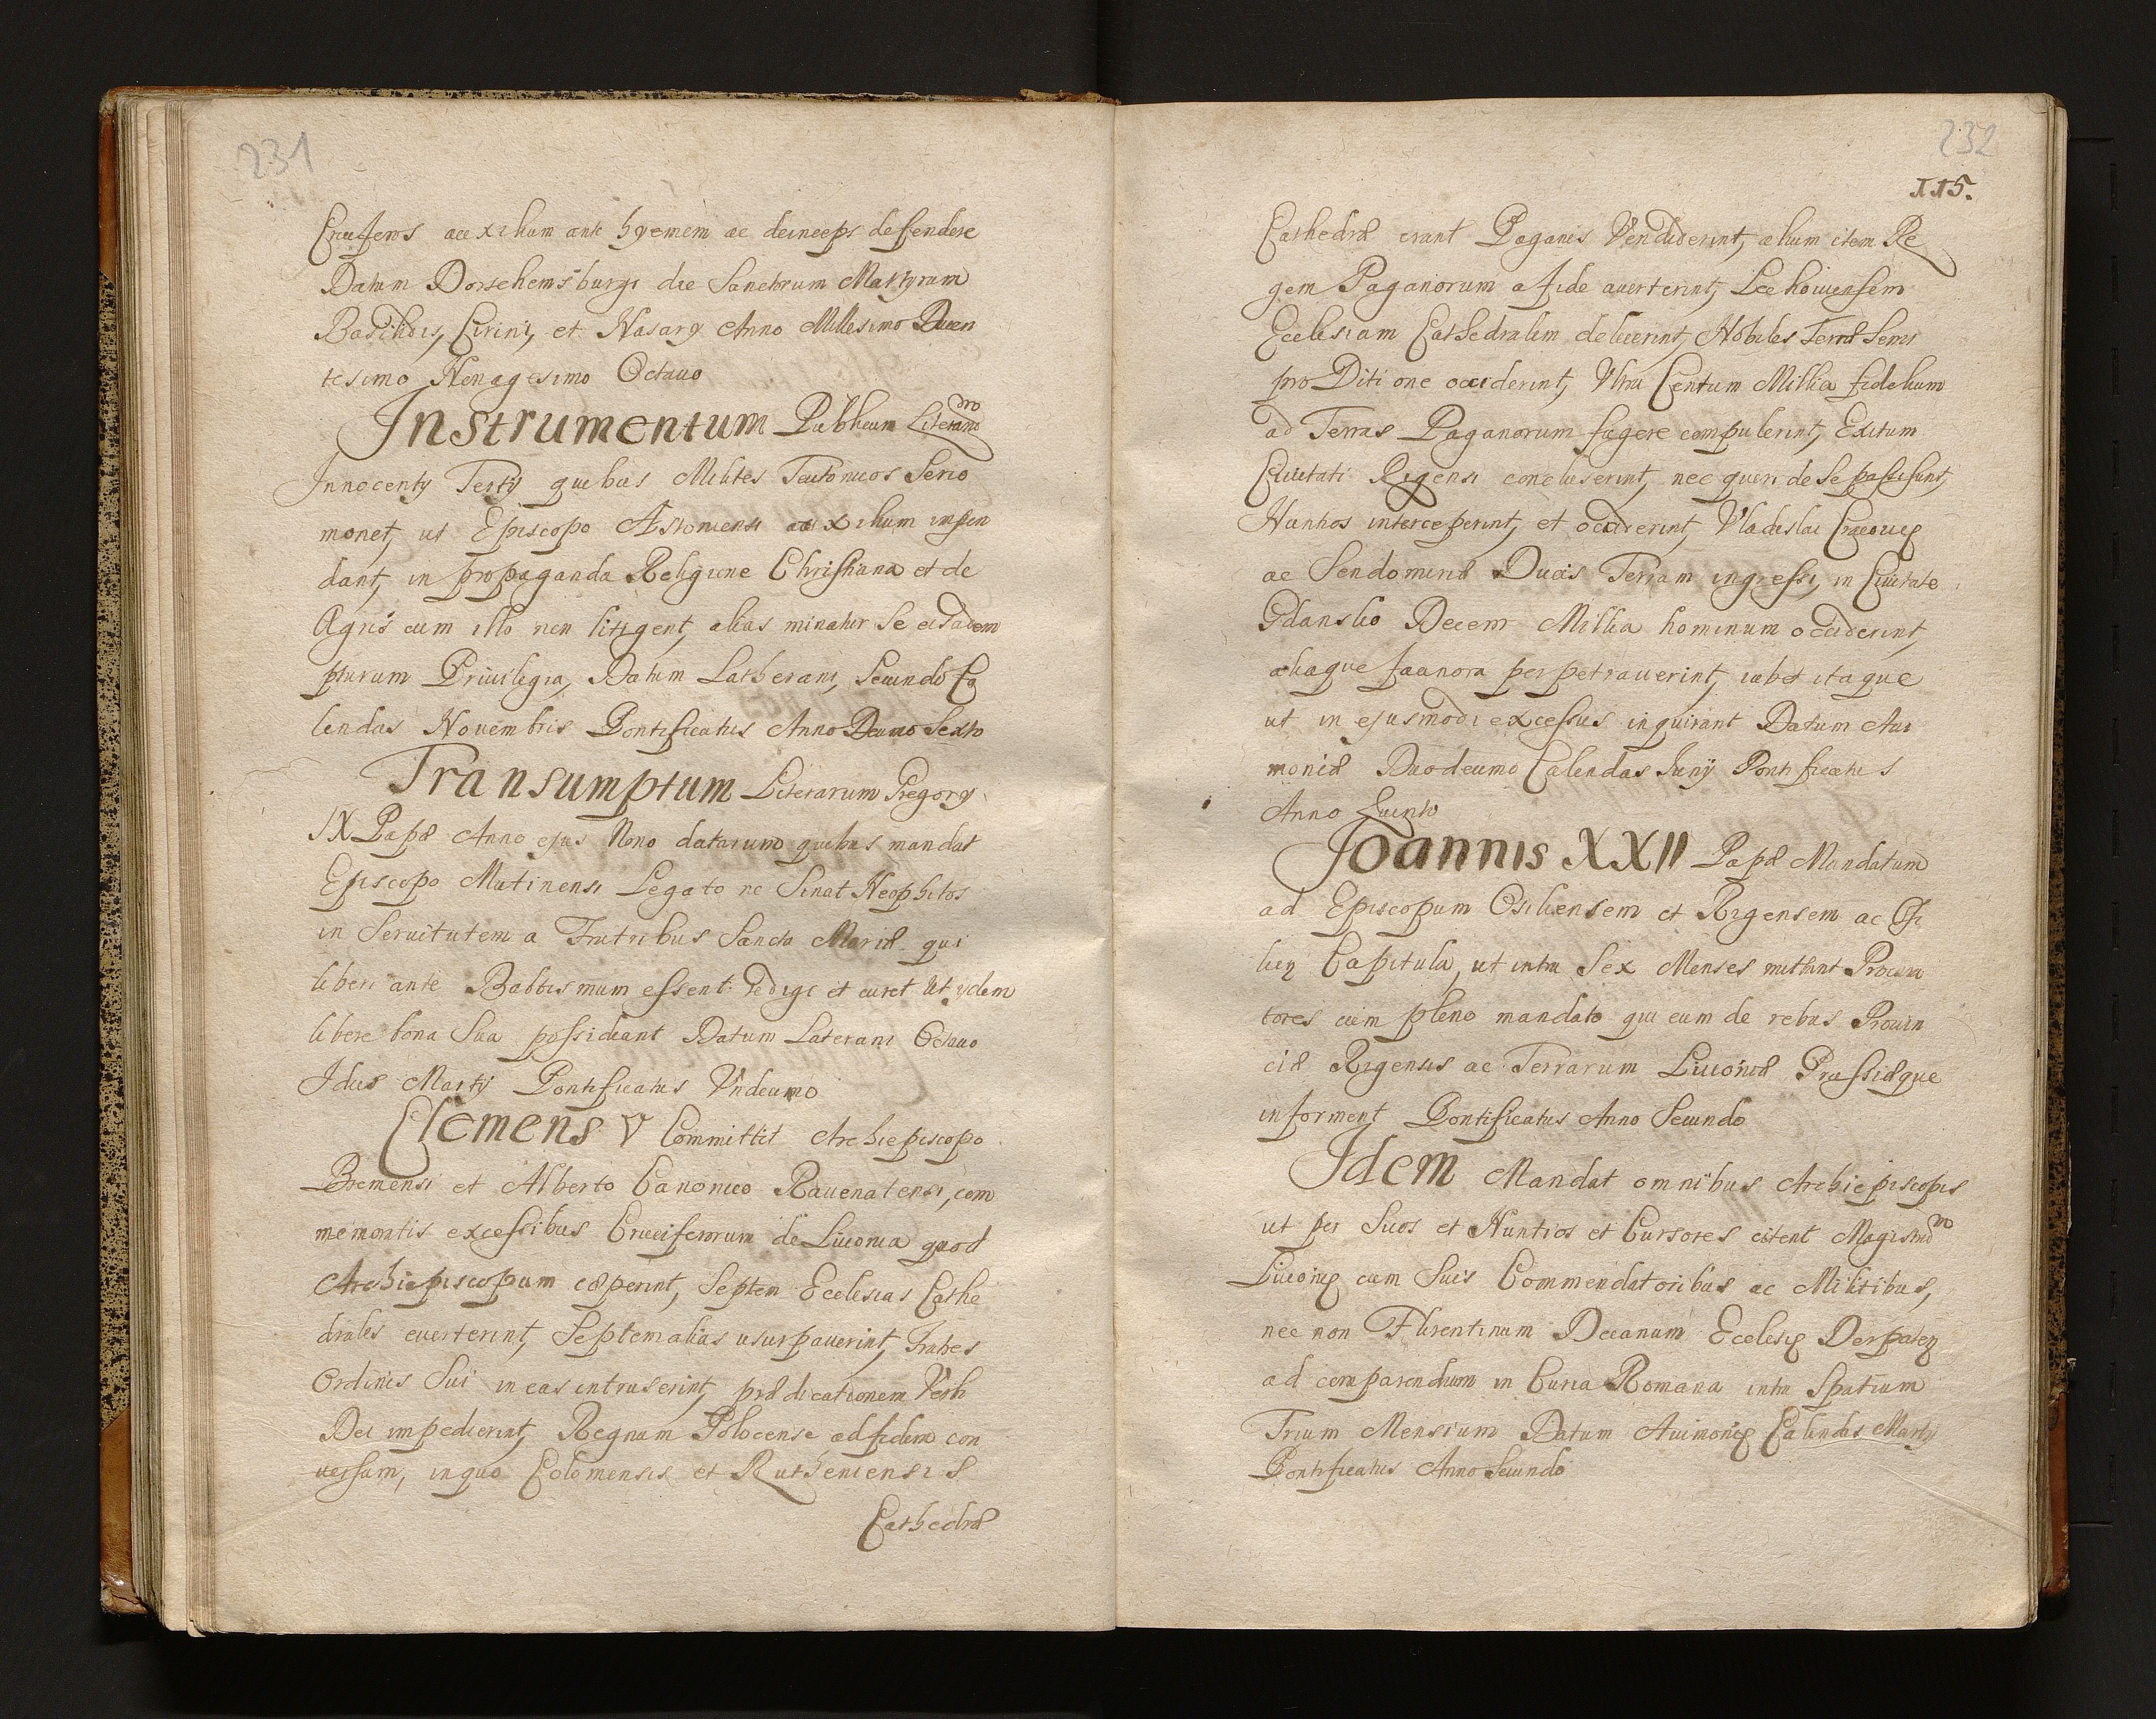 231
Cruciferos auxilium ante hyemem ac deinceps defendere
Datum Dorschemsburgi die Sanctrum Martyrum
Basilidis, Cirini, et Nasary Anno Millesimo Ducen
tesimo Nenagesimo Octauo
Instrumentum Publicum Literaro
Innocenty Tertij quibus Milites Teutonicos Serio
monet, ut Episcopo Æstoniensi auxilium impen
dant, in propaganda Religione Christiana et de
Agris cum illo non litigent, alias minatur Se eis adem
pturum Priuilegia, Datum Latherani, Secundo Ca
lendas Nouembris Pontificatus Anno Decimo Sexto
Transumptum Literarum Gregory
IX Papæ Anno ejus Nono datarum quibus mandat
Episcopo Mutinensi Legato ne Sinat Neophitos
in Seruitutem a Fratribus Sancta Mariæ qui
liberi ante Babtismum essent redigi et curet Ut ijdem
libere bona Sua possideant Datum Laterani Octauo
Idus Martij Pontificatus Vndecimo
Clemens V Committit Archiepiscopo
Bremensi et Alberto Canonico Rauenatensi, com
memoratis excessibus Cruciferorum de Liuonia quod
Archiepiscopum cæperint, Septem Ecclesias Cathe
drales euerterint, Septem alias usurpauerint, Fratres
Ordinis Sui in eas intruserint, prædicationem Verbi
Dei impedierint, Regnum Polocense ad fidem con
uersum, in quo Colomensis et Rutheniensis
Cathedræ
232
115.
Cathedræ erant Paganis Vendiderint, alium item Re
gem Paganorum a fide auerterint, Lechouiensem
Ecclesiam Cathedralem deleuerint, Nobiles Terræ Semi
pro Ditione occiderint, Vltra Centum Millia fidelium
ad Terras Paganorum fugere compulerint, Exitum
Ciuitati Rigensi concluserint, nec queri de Se passi sunt,
Nuntios interceperint, et occiderint, Vladislai Cracouię
ac Sendomiriæ Ducis Terram ingressi, in Ciuitate
Gdansko Decem Millia hominum occiderint,
aliaque facinora perpetrauerint, iubet itaque
ut in ejusmodi excessus inquirant Datum Aui
moniæ Duodecimo Calendas Junij Pontificatus
Anno Quinto
Joannis XXII Papæ Mandatum
ad Episcopum Osiliensem et Rigensem ac Osi
lien Capitula, ut intra Sex Menses mittant Procura
tores cum pleno mandato qui eum de rebus Prouin
ciæ Rigensis ac Terrarum Liuoniæ Prussiæque
informent Pontificatus Anno Secundo
Idem Mandat omnibus Archiepiscopis
ut per Suos et Nuntios et Cursores citent Magistro
Liuonię cum Suis Commendatoribus ac Militibus,
nec non Florentinum Decanum Ecclesię Derpaten
ad comparendum in Curia Romana intra Spatium
Trium Mensium Datum Auimonię Calendis Martij
Pontificatus Anno Secundo